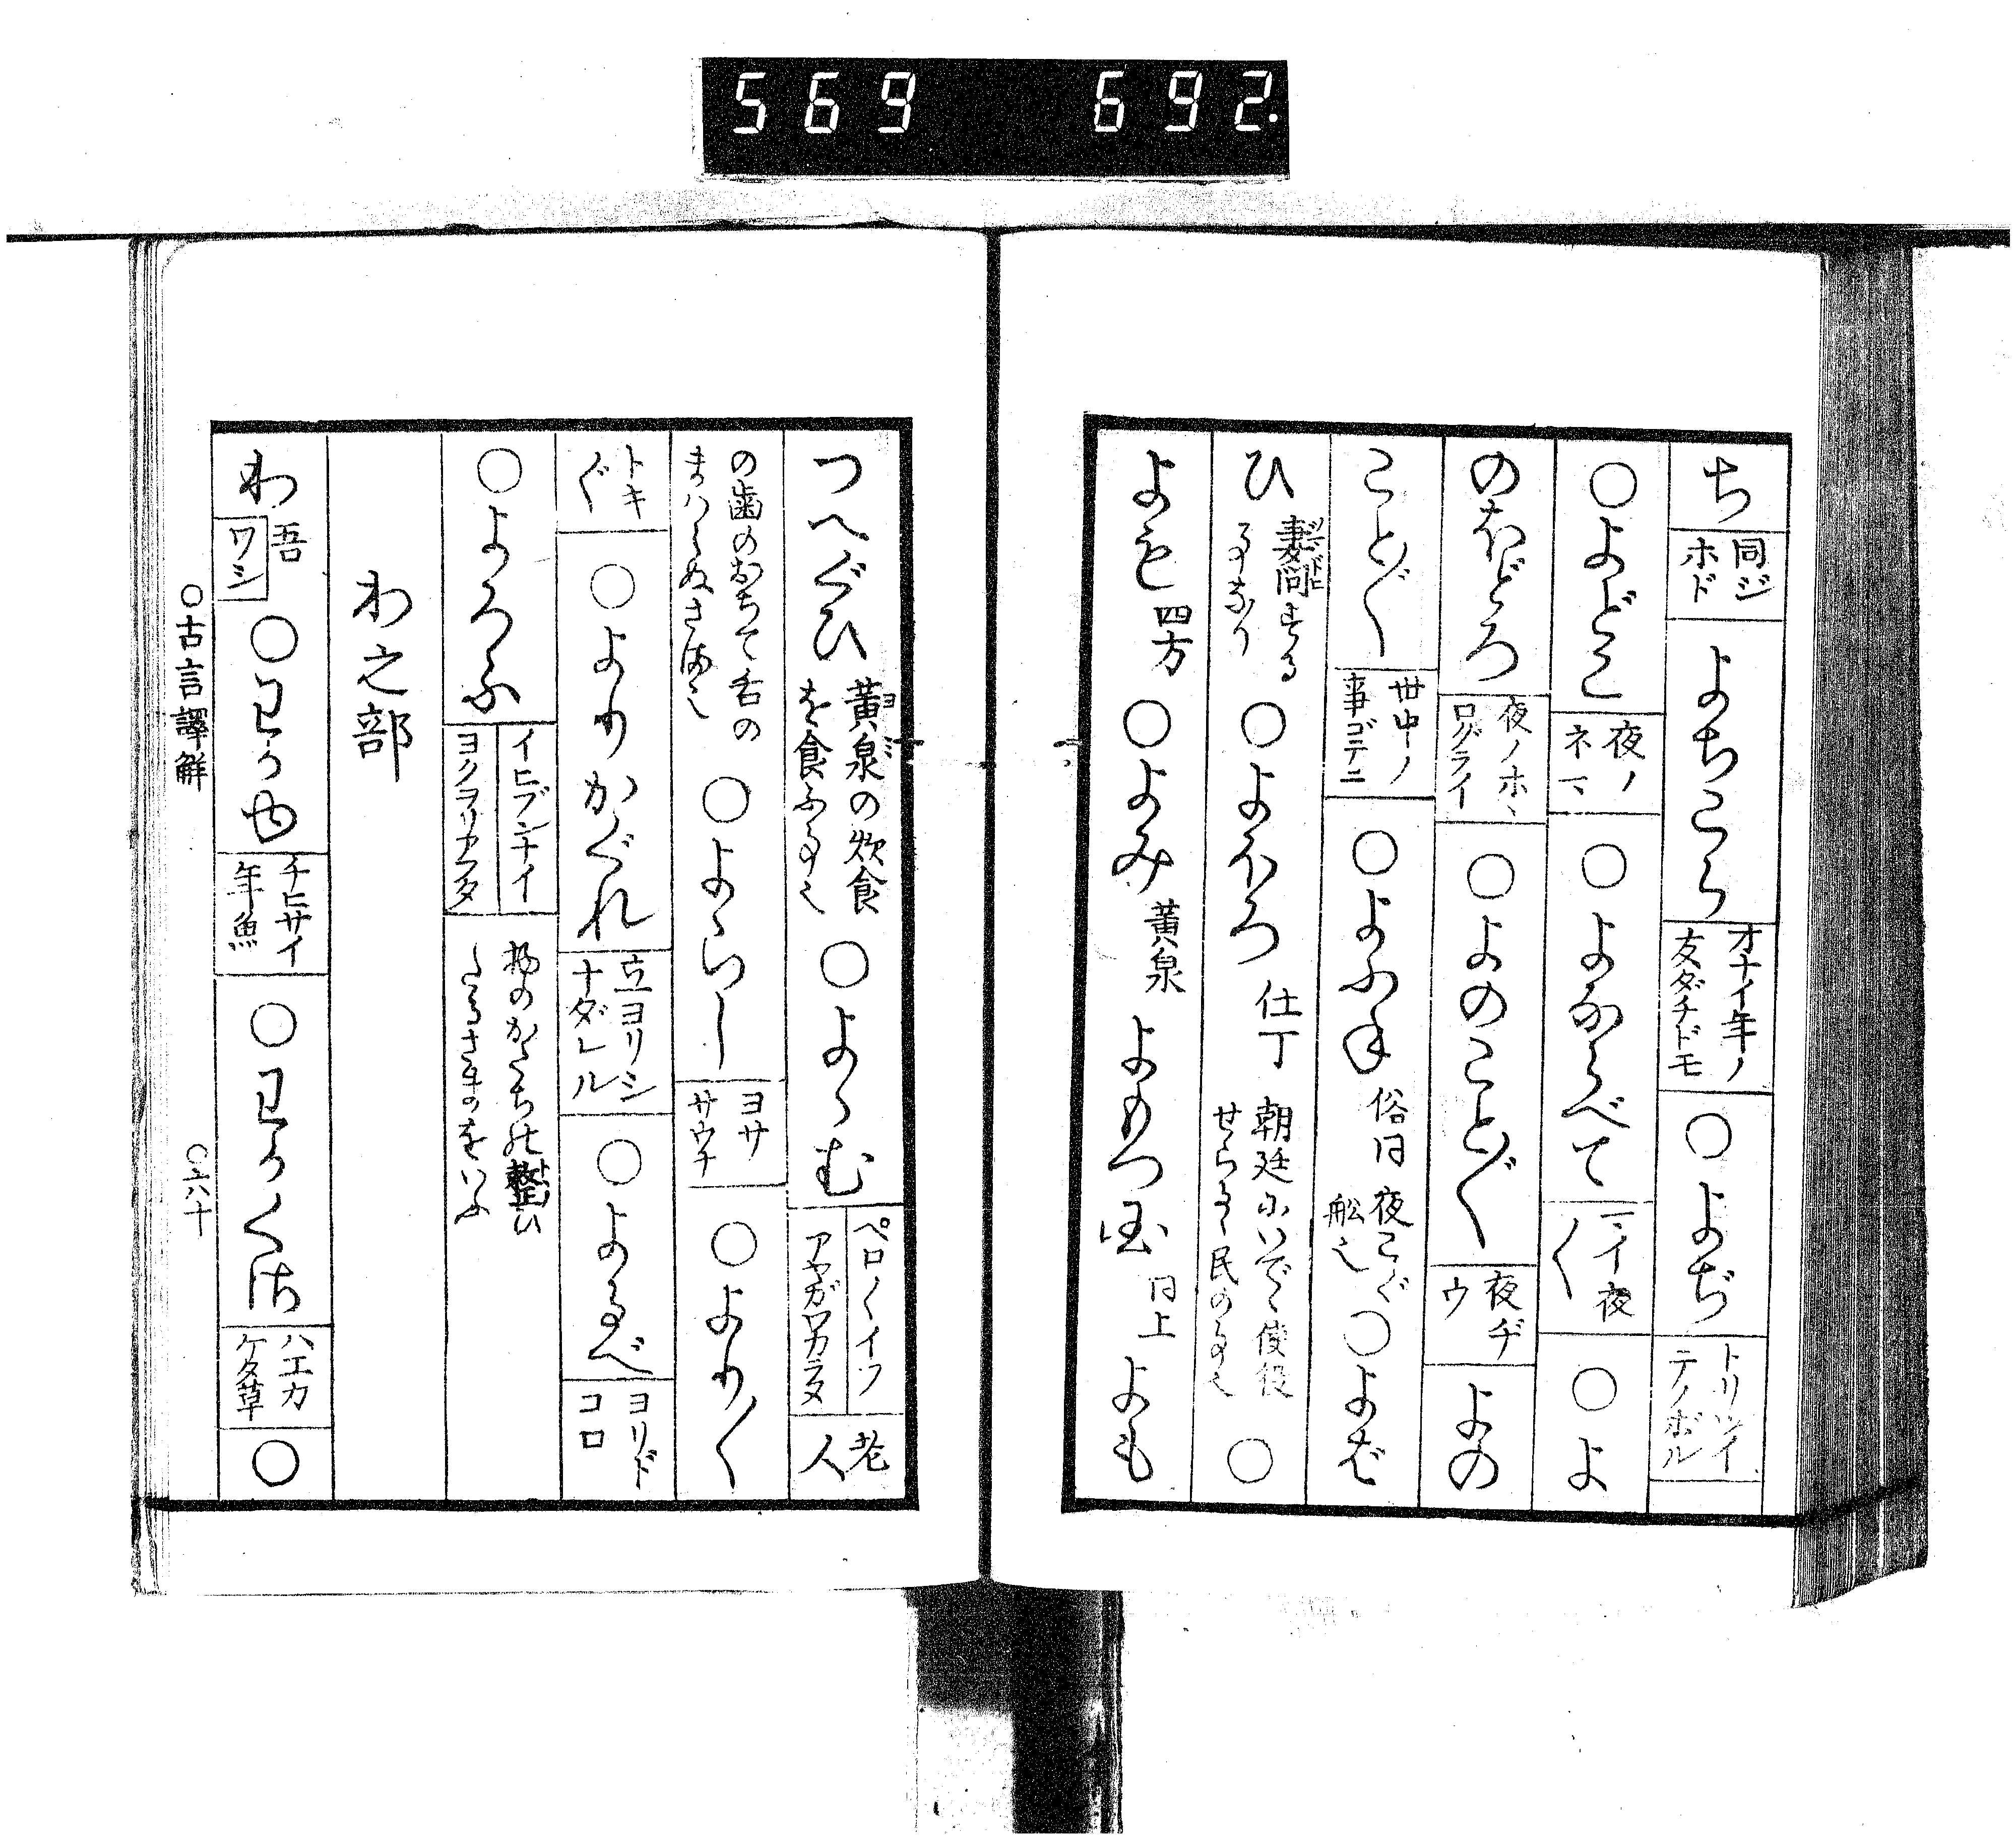 569 692.
ち 同ジホド よちこら オナイ年ノ友ダチドモ ○よぢ トリツイテノボル
○よどこ 夜ノネマ ○よならべて マイ夜〱 ○よ
のほどろ 夜ノホドログライ ○よのこと〲 夜ヂウ よの
こと〲 世中ノ事ゴテニ ○よふね 俗同 夜こぐ船也 ○よば
ひ 妻問する事なり ○よほろ 仕丁 朝廷にいでゝ使役せらるゝ民の事也 ○
よも 四方 ○よみ 黄泉 よもつ国 同上 よも
つへぐひ 黄泉の炊食を食ふ事也 ○よゝむ ペロ〱イフ アヤガワカラヌ 老人
の歯のおちて舌のまはらぬさま也 ○よゝらし ヨササウナ ○より〱
トキ〲 ○よりかぐれ 立ヨリシナダレル ○よるべ ヨリドコロ
○よろふ イヒブンナイ ヨクヲリヤツタ 物のかたちの整ひたるさまをいふ
わ之部
わ 吾 ワシ ○わかゆ チヒサイ年魚 ○わかくさ ハエカケタ草 ○
○古言譯解 ○六十